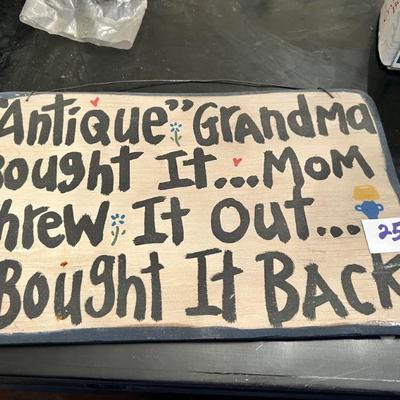 "Antique," Grandma
Bought It...Mom
hrew It Out...
Bought It Back
25